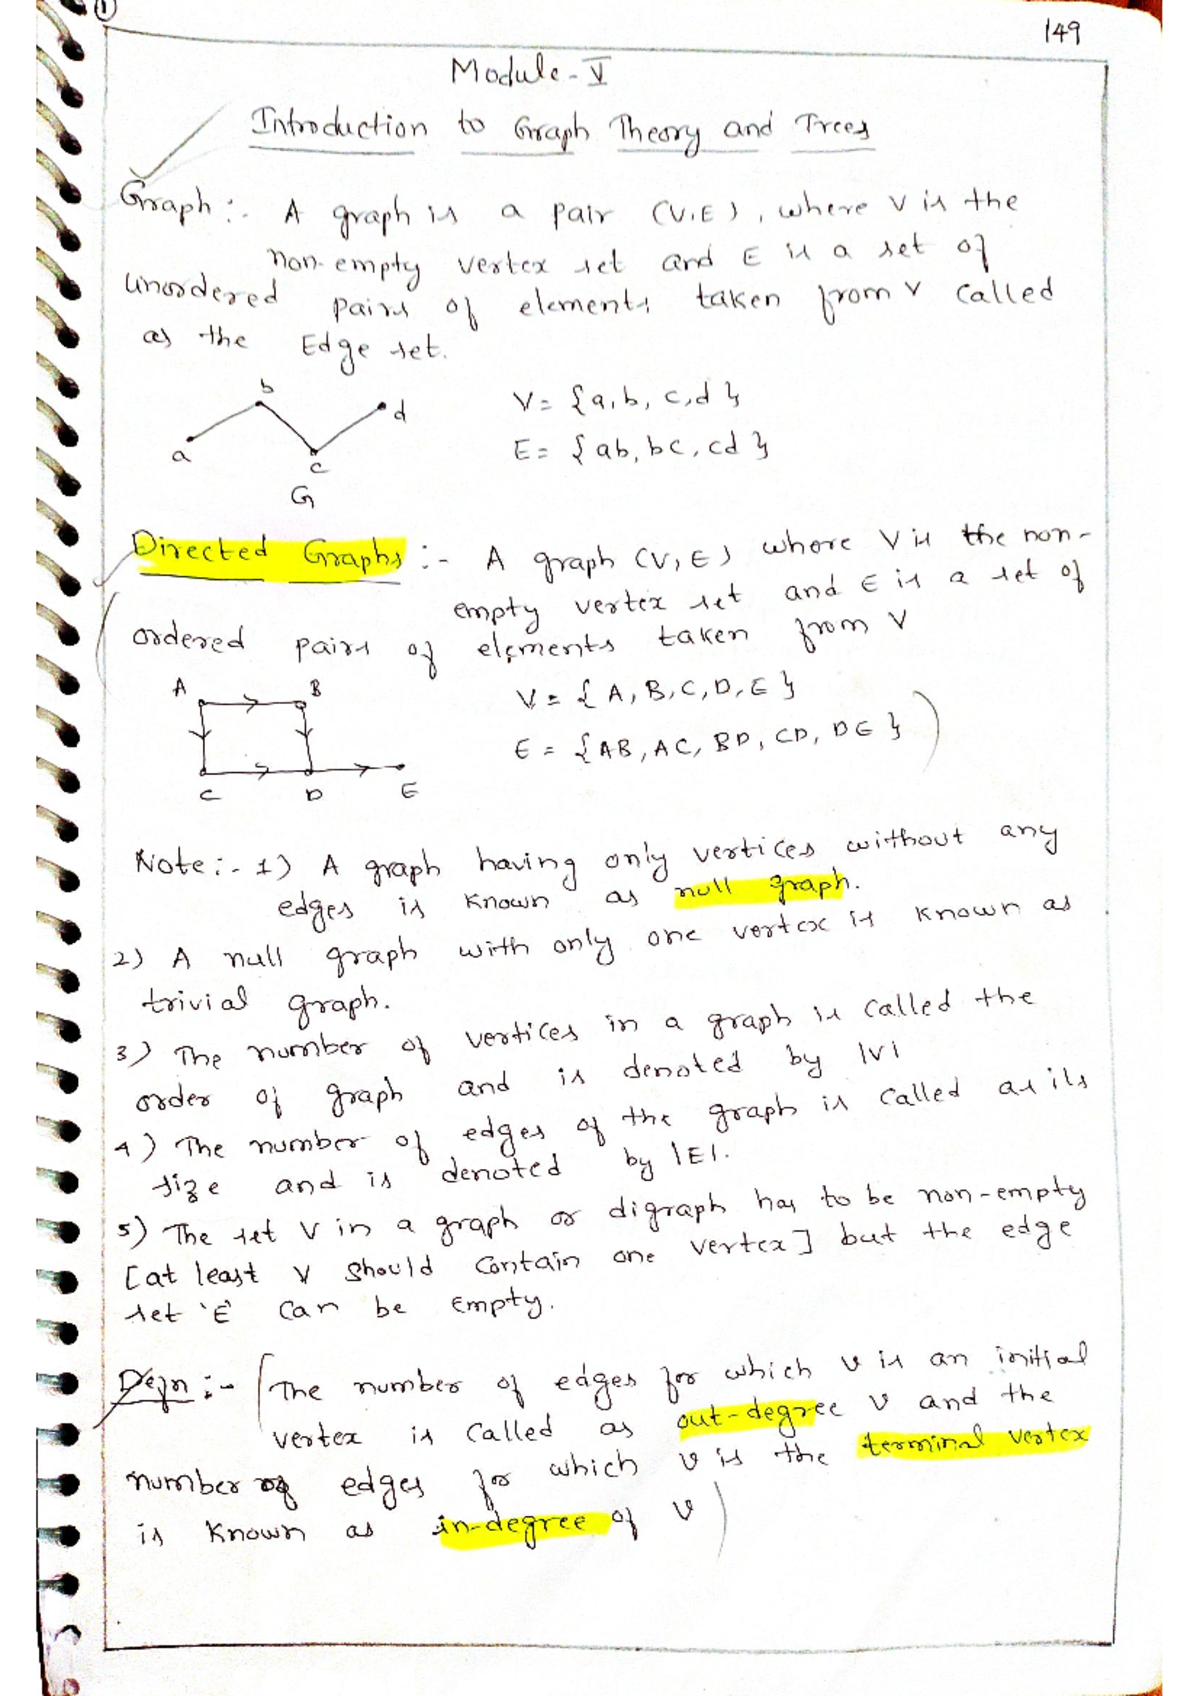 1
149
Module - V
Introduction to Graph Theory and Trees
Graph :- A graph is a pair (V,E), where V is the
non-empty vertex set and E is a set of
unordered pairs of elements taken from V called
as the Edge set.
b
d
a
c
G
V = {a, b, c, d}
E = {ab, bc, cd}
Directed Graphs :- A graph (V, E) where V is the non-
empty vertex set and E is a set of
ordered pairs of elements taken from V
A B
C D E
V = {A, B, C, D, E}
E = {AB, AC, BD, CD, DE}
Note :- 1) A graph having only vertices without any
edges is known as null graph.
2) A null graph with only one vertex is known as
trivial graph.
3) The number of vertices in a graph is called the
order of graph and is denoted by |V|
4) The number of edges of the graph is called as its
size and is denoted by |E|.
5) The set V in a graph or digraph has to be non-empty
[at least V should contain one vertex] but the edge
set 'E' can be empty.
Defn :- The number of edges for which v is an initial
vertex is called as out-degree v and the
number of edges for which v is the terminal vertex
is known as in-degree of v